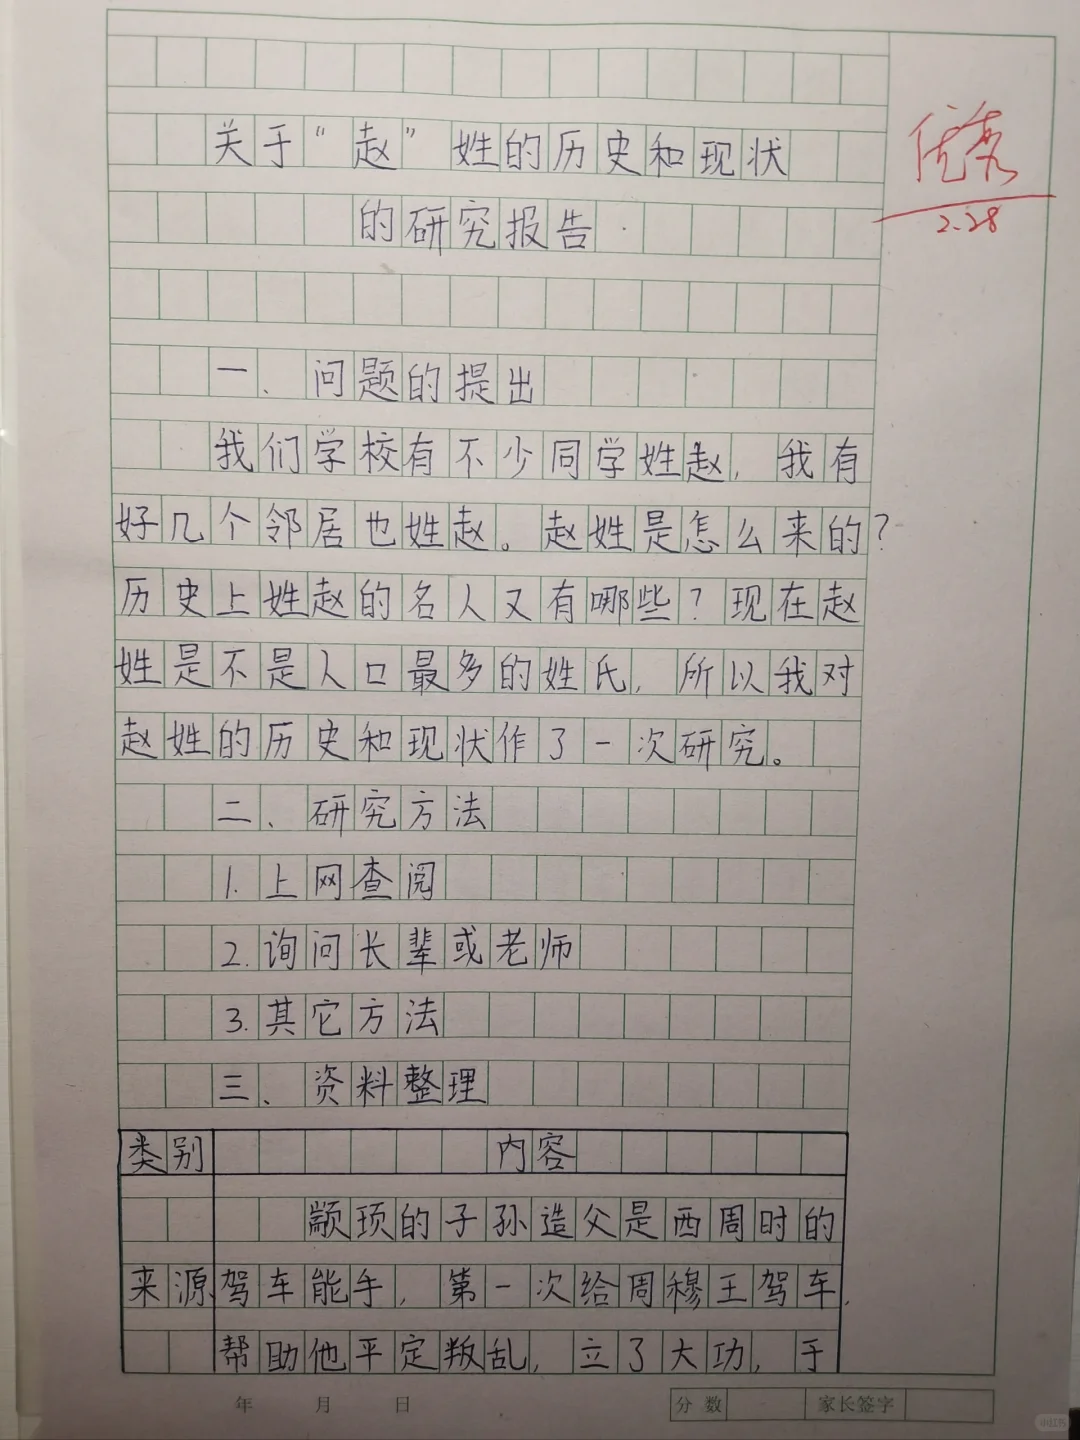 关于“赵”姓的历史和现状
的研究报告
优秀
2.28
一、问题的提出
我们学校有不少同学姓赵，我有
好几个邻居也姓赵。赵姓是怎么来的？
历史上姓赵的名人又有哪些？现在赵
姓是不是人口最多的姓氏，所以我对
赵姓的历史和现状作了一次研究。
二、研究方法
1.上网查阅
2.询问长辈或老师
3.其它方法
三、资料整理
类别 内容
颛顼的子孙造父是西周时的
来源 驾车能手，第一次给周穆王驾车，
帮助他平定叛乱，立了大功，于
年 月 日 分数 家长签字
小红书